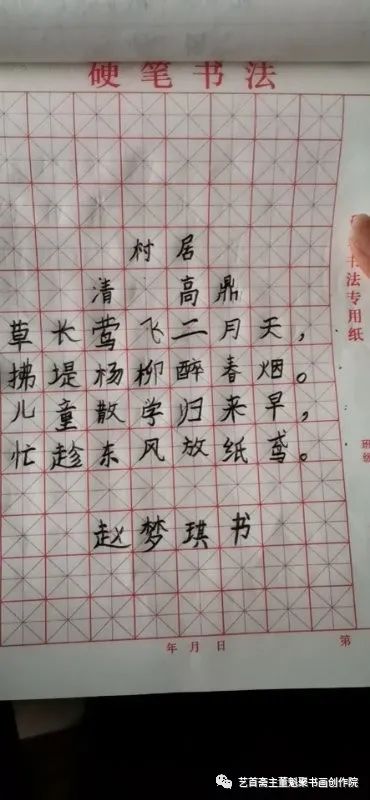 硬笔书法
村居
清 高鼎
草长莺飞二月天，
拂堤杨柳醉春烟。
儿童散学归来早，
忙趁东风放纸鸢。
赵梦琪书
年 月 日
第
书法专用纸
班级
艺首斋主董魁聚书画创作院